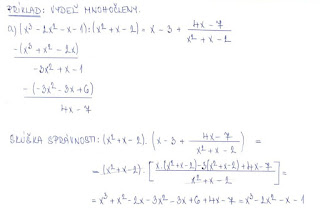 PRÍKLAD: VYDEĽ MNOHOČLENY.
a) (x³ - 2x² - x - 1) : (x² + x - 2) = x - 3 + (4x - 7)/(x² + x - 2)
-(x³ + x² - 2x)
-3x² + x - 1
-(-3x² - 3x + 6)
4x - 7
SKÚŠKA SPRÁVNOSTI: (x² + x - 2) . (x - 3 + (4x - 7)/(x² + x - 2)) =
= (x² + x - 2) . [(x.(x² + x - 2) - 3(x² + x - 2) + 4x - 7)/(x² + x - 2)] =
= x³ + x² - 2x - 3x² - 3x + 6 + 4x - 7 = x³ - 2x² - x - 1